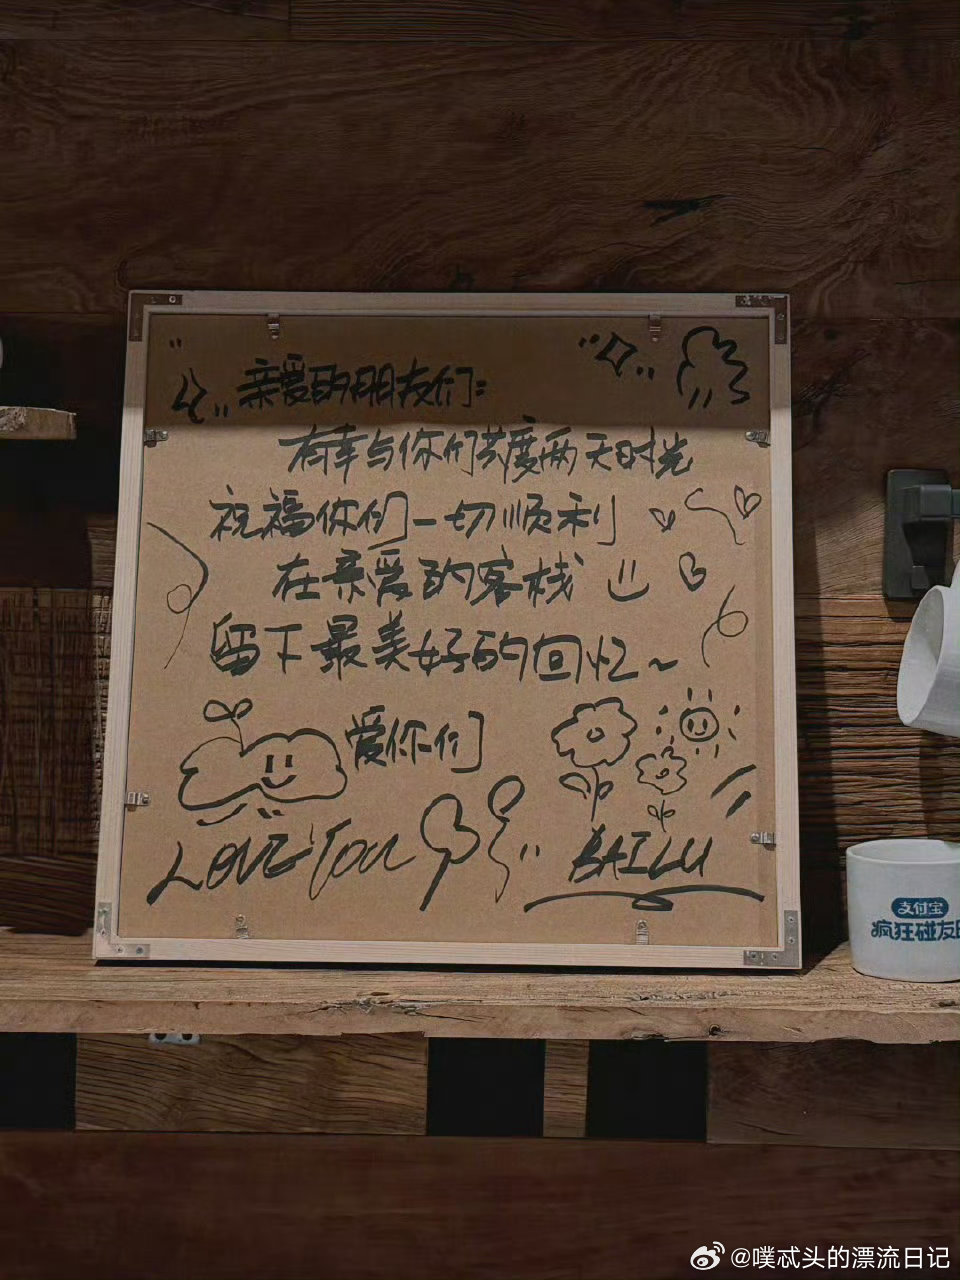 亲爱的朋友们：
有幸与你们共度两天时光
祝福你们一切顺利
在亲爱的客栈
留下最美好的回忆~
爱你们
LOVE You
BAILU
支付宝
疯狂碰友日
@噗忒头的漂流日记